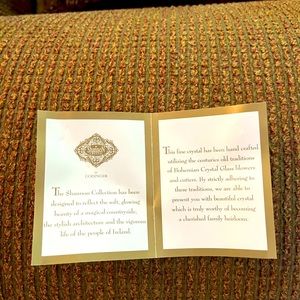 GODINGER
The Shannon Collection has been
designed to reflect the soft, glowing
beauty of a magical countryside,
the stylish architecture and the vigorous
life of the people of Ireland.
This fine crystal has been hand crafted
utilizing the centuries old traditions
of Bohemian Crystal Glass blowers
and cutters. By strictly adhering to
these traditions, we are able to
present you with beautiful crystal
which is truly worthy of becoming
a cherished family heirloom.